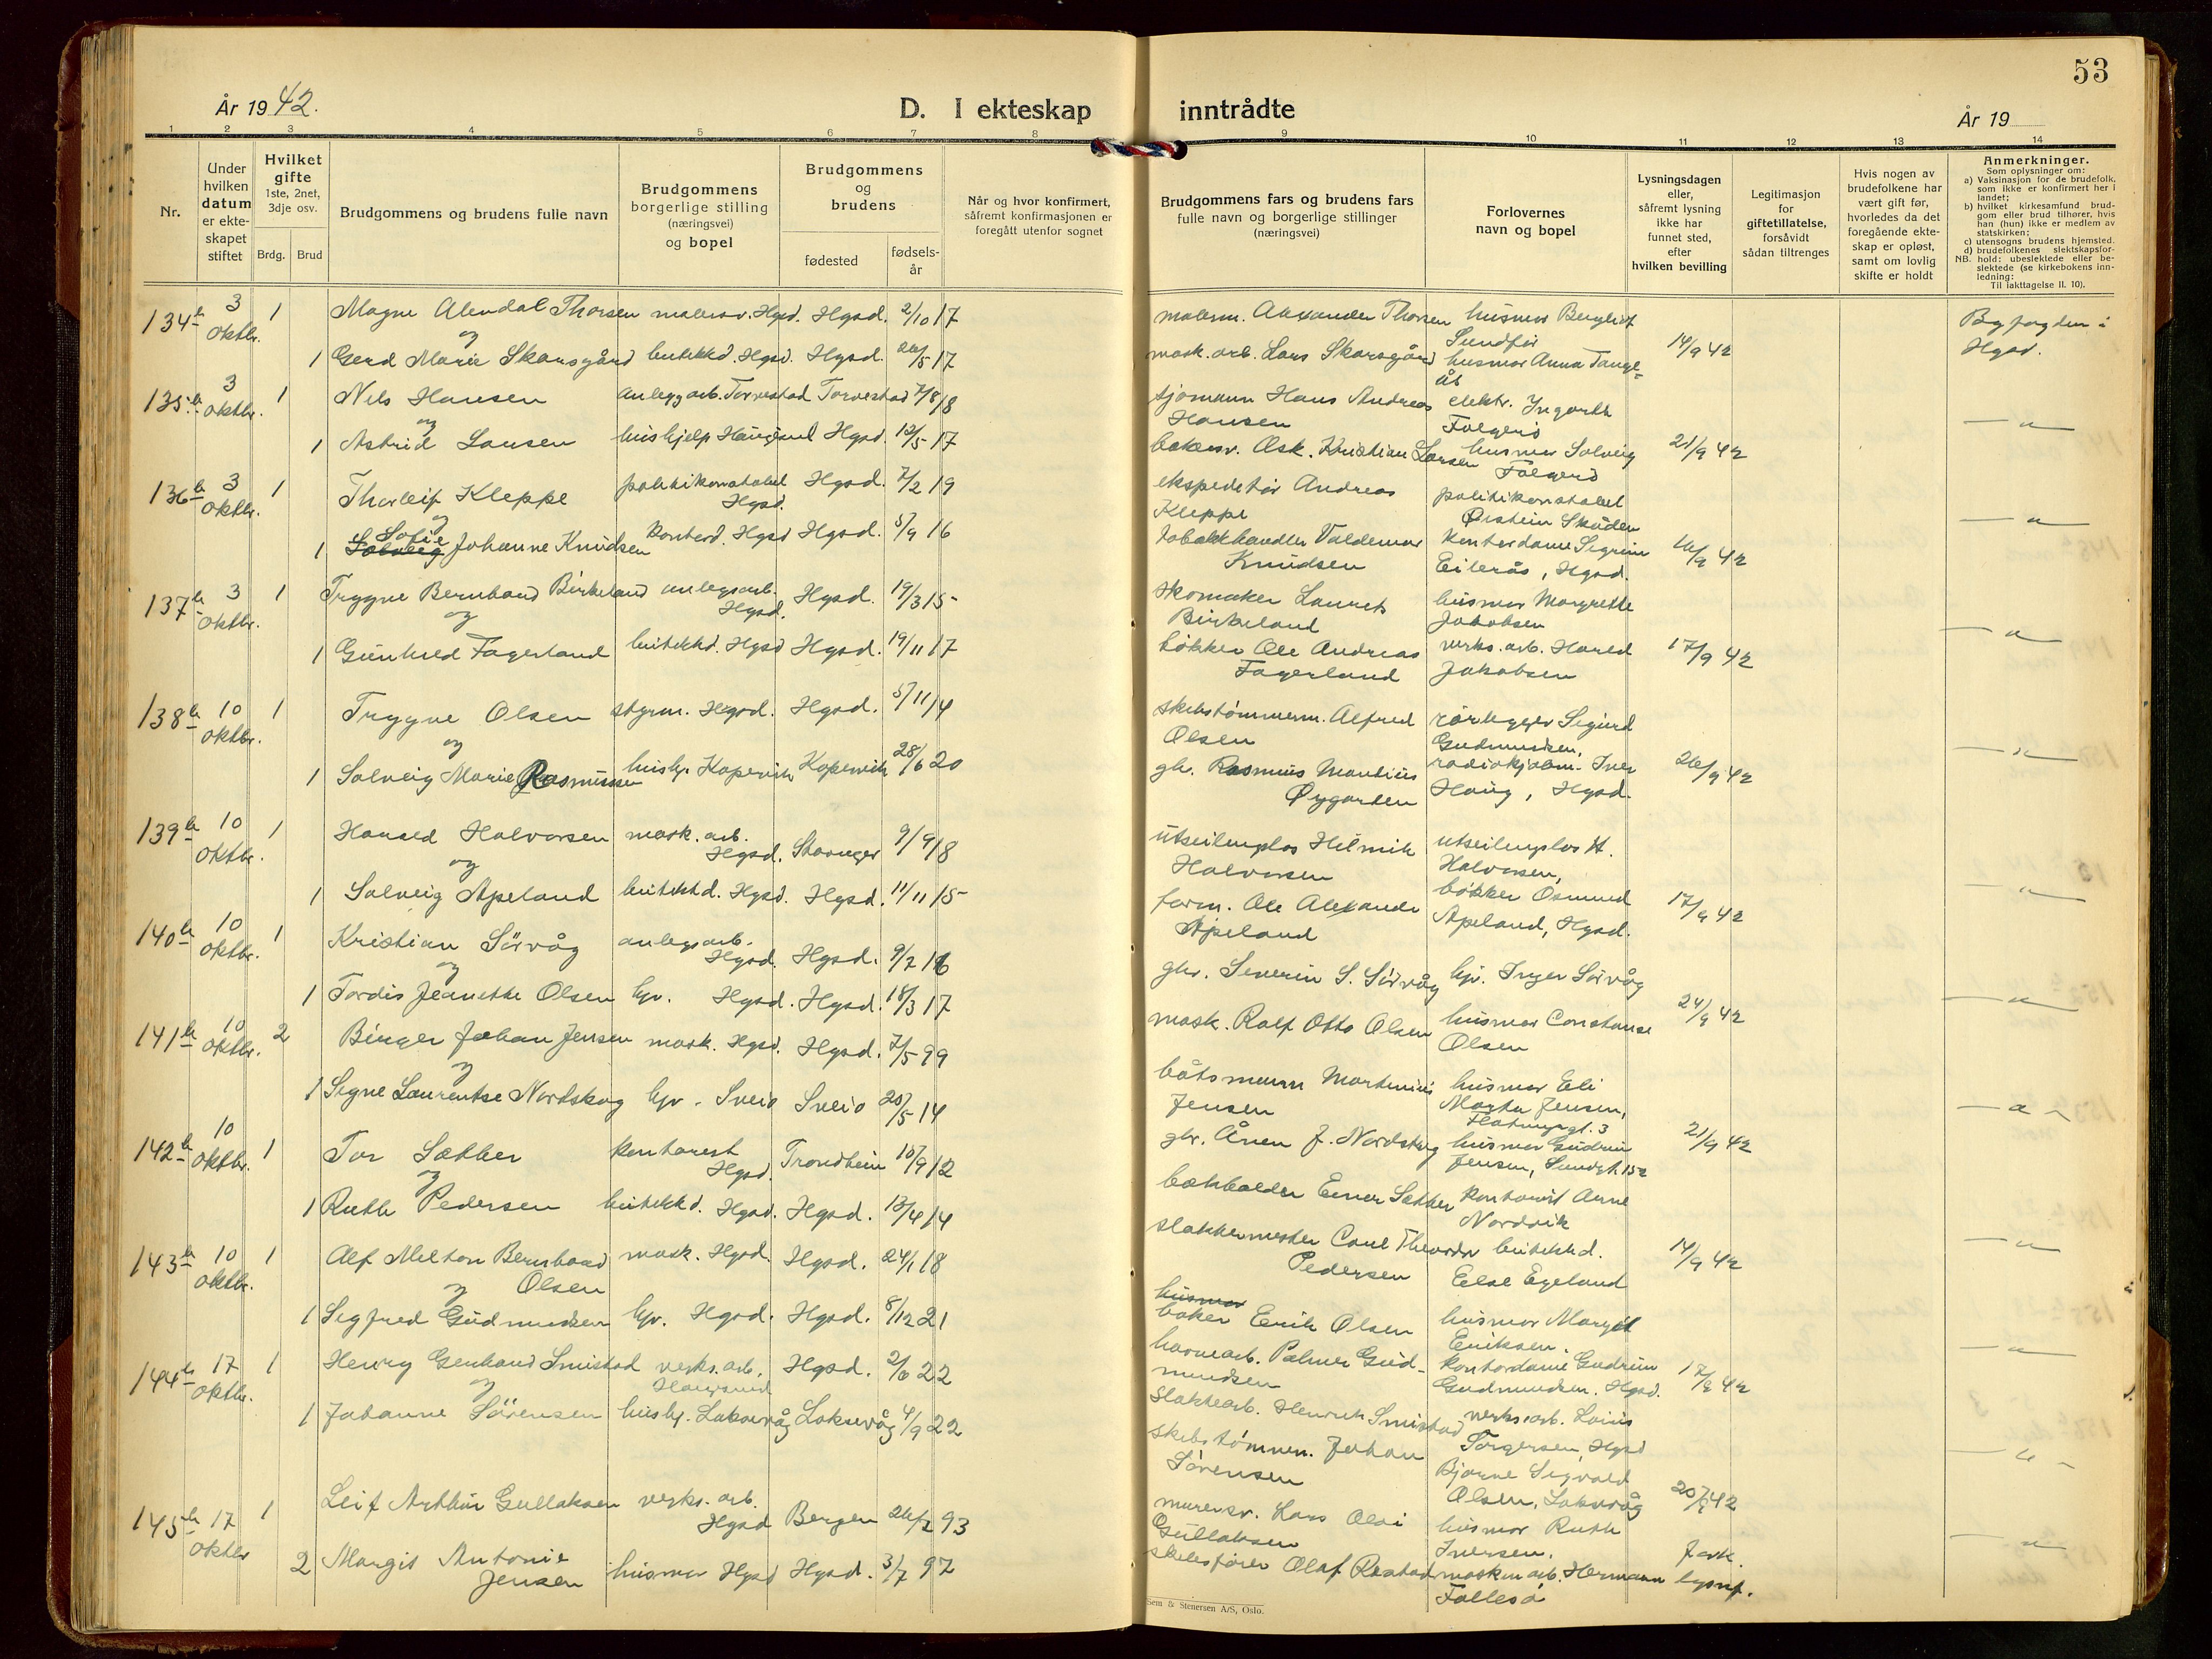 År 1942.
D. I ekteskap
inntrådte
53
År 19
1 2 3 4 5 6 7 8
9 10 11 12 13 14
Nr.
Under hvilken datum er ekteskapet stiftet
Hvilket gifte
1ste, 2net, 3dje osv.
Brdg. Brud
Brudgommens og brudens fulle navn
Brudgommens borgerlige stilling (næringsvei) og bopel
Brudgommens og brudens
fødested
fødsels-år
Når og hvor konfirmert, såfremt konfirmasjonen er foregått utenfor sognet
Brudgommens fars og brudens fars fulle navn og borgerlige stillinger (næringsvei)
Forlovernes navn og bopel
Lysningsdagen eller, såfremt lysning ikke har funnet sted, efter hvilken bevilling
Legitimasjon for giftetillatelse, forsåvidt sådan tiltrenges
Hvis nogen av brudefolkene har vært gift før, hvorledes da det foregående ekteskap er opløst, samt om lovlig skifte er holdt
Anmerkninger.
Som oplysninger om:
a) Vaksinasjon for de brudefolk, som ikke er konfirmert her i landet;
b) hvilket kirkesamfund brudgom eller brud tilhører, hvis han (hun) ikke er medlem av statskirken;
c) utensogns brudens hjemsted.
d) brudefolkenes slektskapsforhold: ubeslektede eller beslektede (se kirkebokens innledning:
NB.
Til iakttagelse II. 10).
134 b 3 oktbr. 1 Magne Alendal Thorsen malersv. Hgsd. Hgsd. 2/10 17
og
1 Gerd Marie Skarsgård butikkd. Hgsd. Hgsd. 26/5 17
135 b 3 oktbr. 1 Nils Hansen anleggarb. Torvestad Torvestad 7/8 18
og
1 Astrid Larsen hushjelp Haugesund Hgsd. 12/5 17
136 b 3 oktbr. 1 Thorleif Kleppe politikonstabel Hgsd. Hgsd. 7/2 19
og
Sofie
1 Solveig Johanne Knudsen kontord. Hgsd Hgsd. 5/9 16
137 b 3 oktbr. 1 Trygve Bernhard Birkeland anlegsarb. Hgsd. Hgsd. 19/3 15
og
1 Gunhild Fagerland butikkd. Hgsd Hgsd. 19/11 17
138 b 10 oktbr. 1 Trygve Olsen styrm. Hgsd. Hgsd. 5/11 14
og
1 Solveig Marie Rasmussen hushj. Kopervik Kopervik 28/6 20
139 b 10 oktbr. 1 Harald Halvorsen mask. arb. Hgsd. Stavanger 9/9 18
og
1 Solveig Apeland butikkd. Hgsd. Hgsd. 11/11 15
140 b 10 oktbr. 1 Kristian Sörvåg anlegsarb. Hgsd. Hgsd. 9/7 16
og
1 Tordis Jeanette Olsen hjv. Hgsd. Hgsd. 18/3 17
141 b 10 oktbr. 2 Birger Johan Jensen mask. Hgsd. Hgsd. 7/5 99
og
1 Signe Laurentse Nordskog hjv. Sveio Sveio 20/5 14
142 b 10 oktbr. 1 Tor Sæther kontorist Hgsd. Trondheim 10/9 12
og
1 Ruth Pedersen butikkd. Hgsd. Hgsd. 13/4 14
143 b 10 oktbr. 1 Alf Milton Bernhard Olsen mask. Hgsd. Hgsd. 24/1 18
og
1 Sigfred Gudmundsen hjv. Hgsd. Hgsd. 8/12 21
144 b 17 oktbr. 1 Henry Gerhard Smistad verks. arb. Haugesund Hgsd. 2/6 22
og
1 Johanne Sörensen hushj. Laksevåg Laksevåg 4/9 22
145 b 17 oktbr 1 Leif Arthur Gullaksen verks. arb. Hgsd Bergen 26/2 93
2 Margit Antonie Jensen husmor Hgsd Hgsd. 3/7 97
malerm. Alexander Thorsen husmor Bergliot Sundför
mask. arb. Lars Skarsgård husmor Anna Tange-
ås
14/9 42
Byfogden i Hgsd.
sjömann Hans Andreas Hansen elektr. Ingarth Falgerö
bakersv. Osk. Kristian Larsen husmor Solveig Falgerö 21/9 42
— " —
ekspeditör Andreas Kleppe politikonstabel Öistein Skåden
tobakkhandler Valdemar Knudsen kontordame Sigrun Eikrås, Hgsd. 16/9 42
— " —
skomaker Laurits Birkeland husmor Margrethe Jakobsen
bökker Ole Andreas Fagerland verks. arb. Harald Jakobsen 17/9 42
— " —
skibstömmerm. Alfred Olsen rörlegger Sigurd Gudmundsen,
gbr. Rasmus Mantius Øygarden Iver Haug, Hgsd. 26/9 42
— " —
utseilingslos Hilmik Halvorsen utseilingslos H. Halvorsen,
form. Ole Alexander Apeland bökker Osmund Apeland, Hgsd. 17/9 42
— " —
gbr. Severin S. Sörvåg hjv. Inger Sörvåg
mask. Ralf Otto Olsen husmor Constanse Olsen 24/9 42
— " —
båtsmann Martinius Jensen husmor Eli Marta Jensen, Flotmyrgt. 3
gbr. Ånen J. Nordskog husmor Gudrun Jensen, Sundgt. 152 21/9 42
— " —
bokholder Einar Sæther kontorist Arne Nordvik
slaktermester Carl Theodor Pedersen butikkd. Else Egeland 14/9 42
— " —
husmor
baker Erik Olsen husmor Margit Eriksen.
havnearb. Palmer Gud-
mundsen kontordame Gudrun Gudmundsen. Hgsd. 17/9 42
— " —
slakterarb. Henrik Smistad verks. arb. Louis Torgersen, Hgsd
skibstömmerm. Johan Sörensen Bjarne Sigvald Olsen, Laksevåg
— " —
murersv. Lars Olai Gullaksen husmor Ruth Iversen.
skibsförer Olaf Restad maskinarb. Hermann Fallesö
— " —
Sem & Stenersen A/S, Oslo.